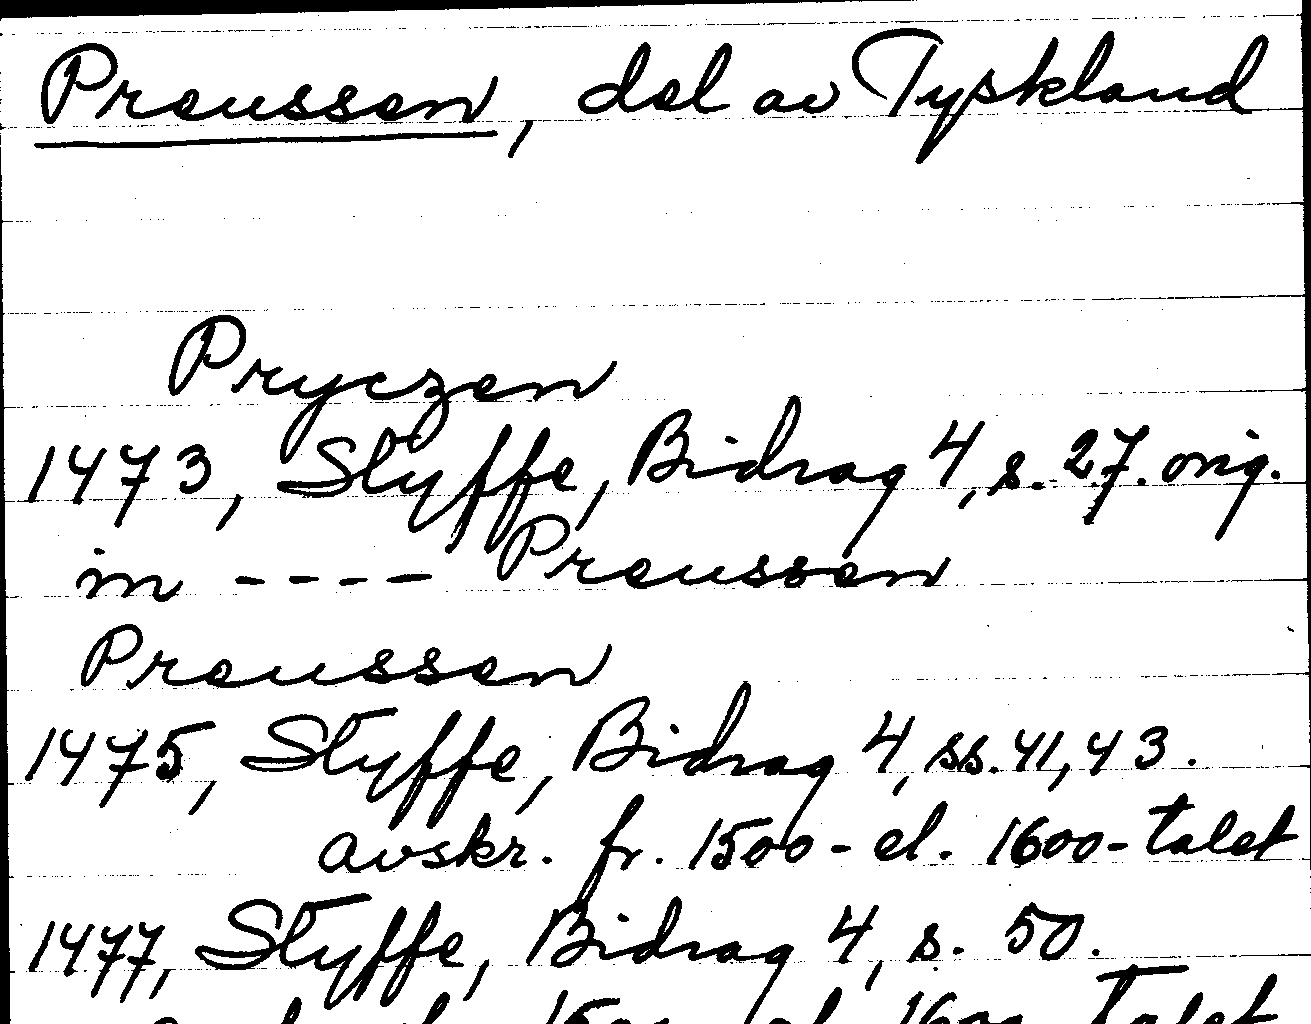 Preussen, del av Tyskland
Pryczen
1473, Styffe, Bidrag 4, s. 27. orig.
in ---- Preussen
Preussen
1475, Styffe, Bidrag 4, ss. 41, 43.
avskr. fr. 1500- el. 1600-talet
1477, Styffe, Bidrag 4, s. 50.
1500- el. 1600-talet